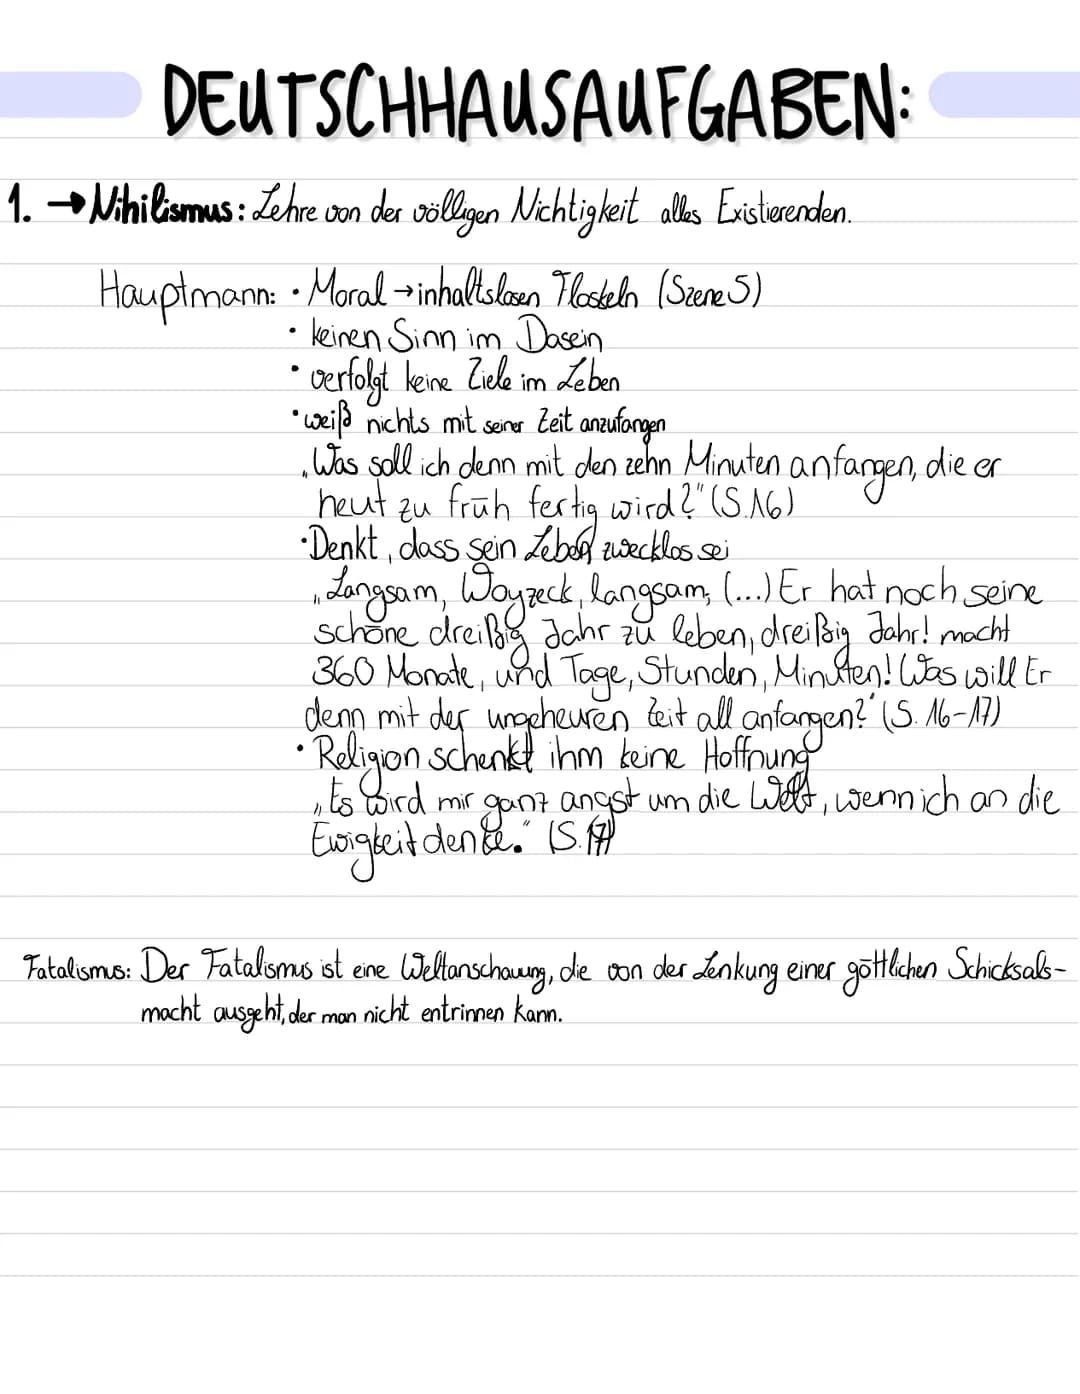 DEUTSCHHAUSAUFGABEN:
1. → Nihilismus: Lehre von der völligen Nichtigkeit alles Existierenden.
Hauptmann: • Moral → inhaltslosen Floskeln (Szene 5)
• keinen Sinn im Dasein
• verfolgt keine Ziele im Leben
• weiß nichts mit seiner Zeit anzufangen
„Was soll ich denn mit den zehn Minuten anfangen, die er
heut zu früh fertig wird?" (S.16)
• Denkt, dass sein Leben zwecklos sei
„Langsam, Woyzeck, langsam, (...) Er hat noch seine
schöne dreißig Jahr zu leben, dreißig Jahr! macht
360 Monate, und Tage, Stunden, Minuten! Was will Er
denn mit der ungeheuren Zeit all anfangen?" (S. 16-17)
• Religion schenkt ihm keine Hoffnung
„Es wird mir ganz angst um die Welt, wenn ich an die
Ewigkeit denke." (S.17)
Fatalismus: Der Fatalismus ist eine Weltanschauung, die von der Lenkung einer göttlichen Schicksals-
macht ausgeht, der man nicht entrinnen kann.